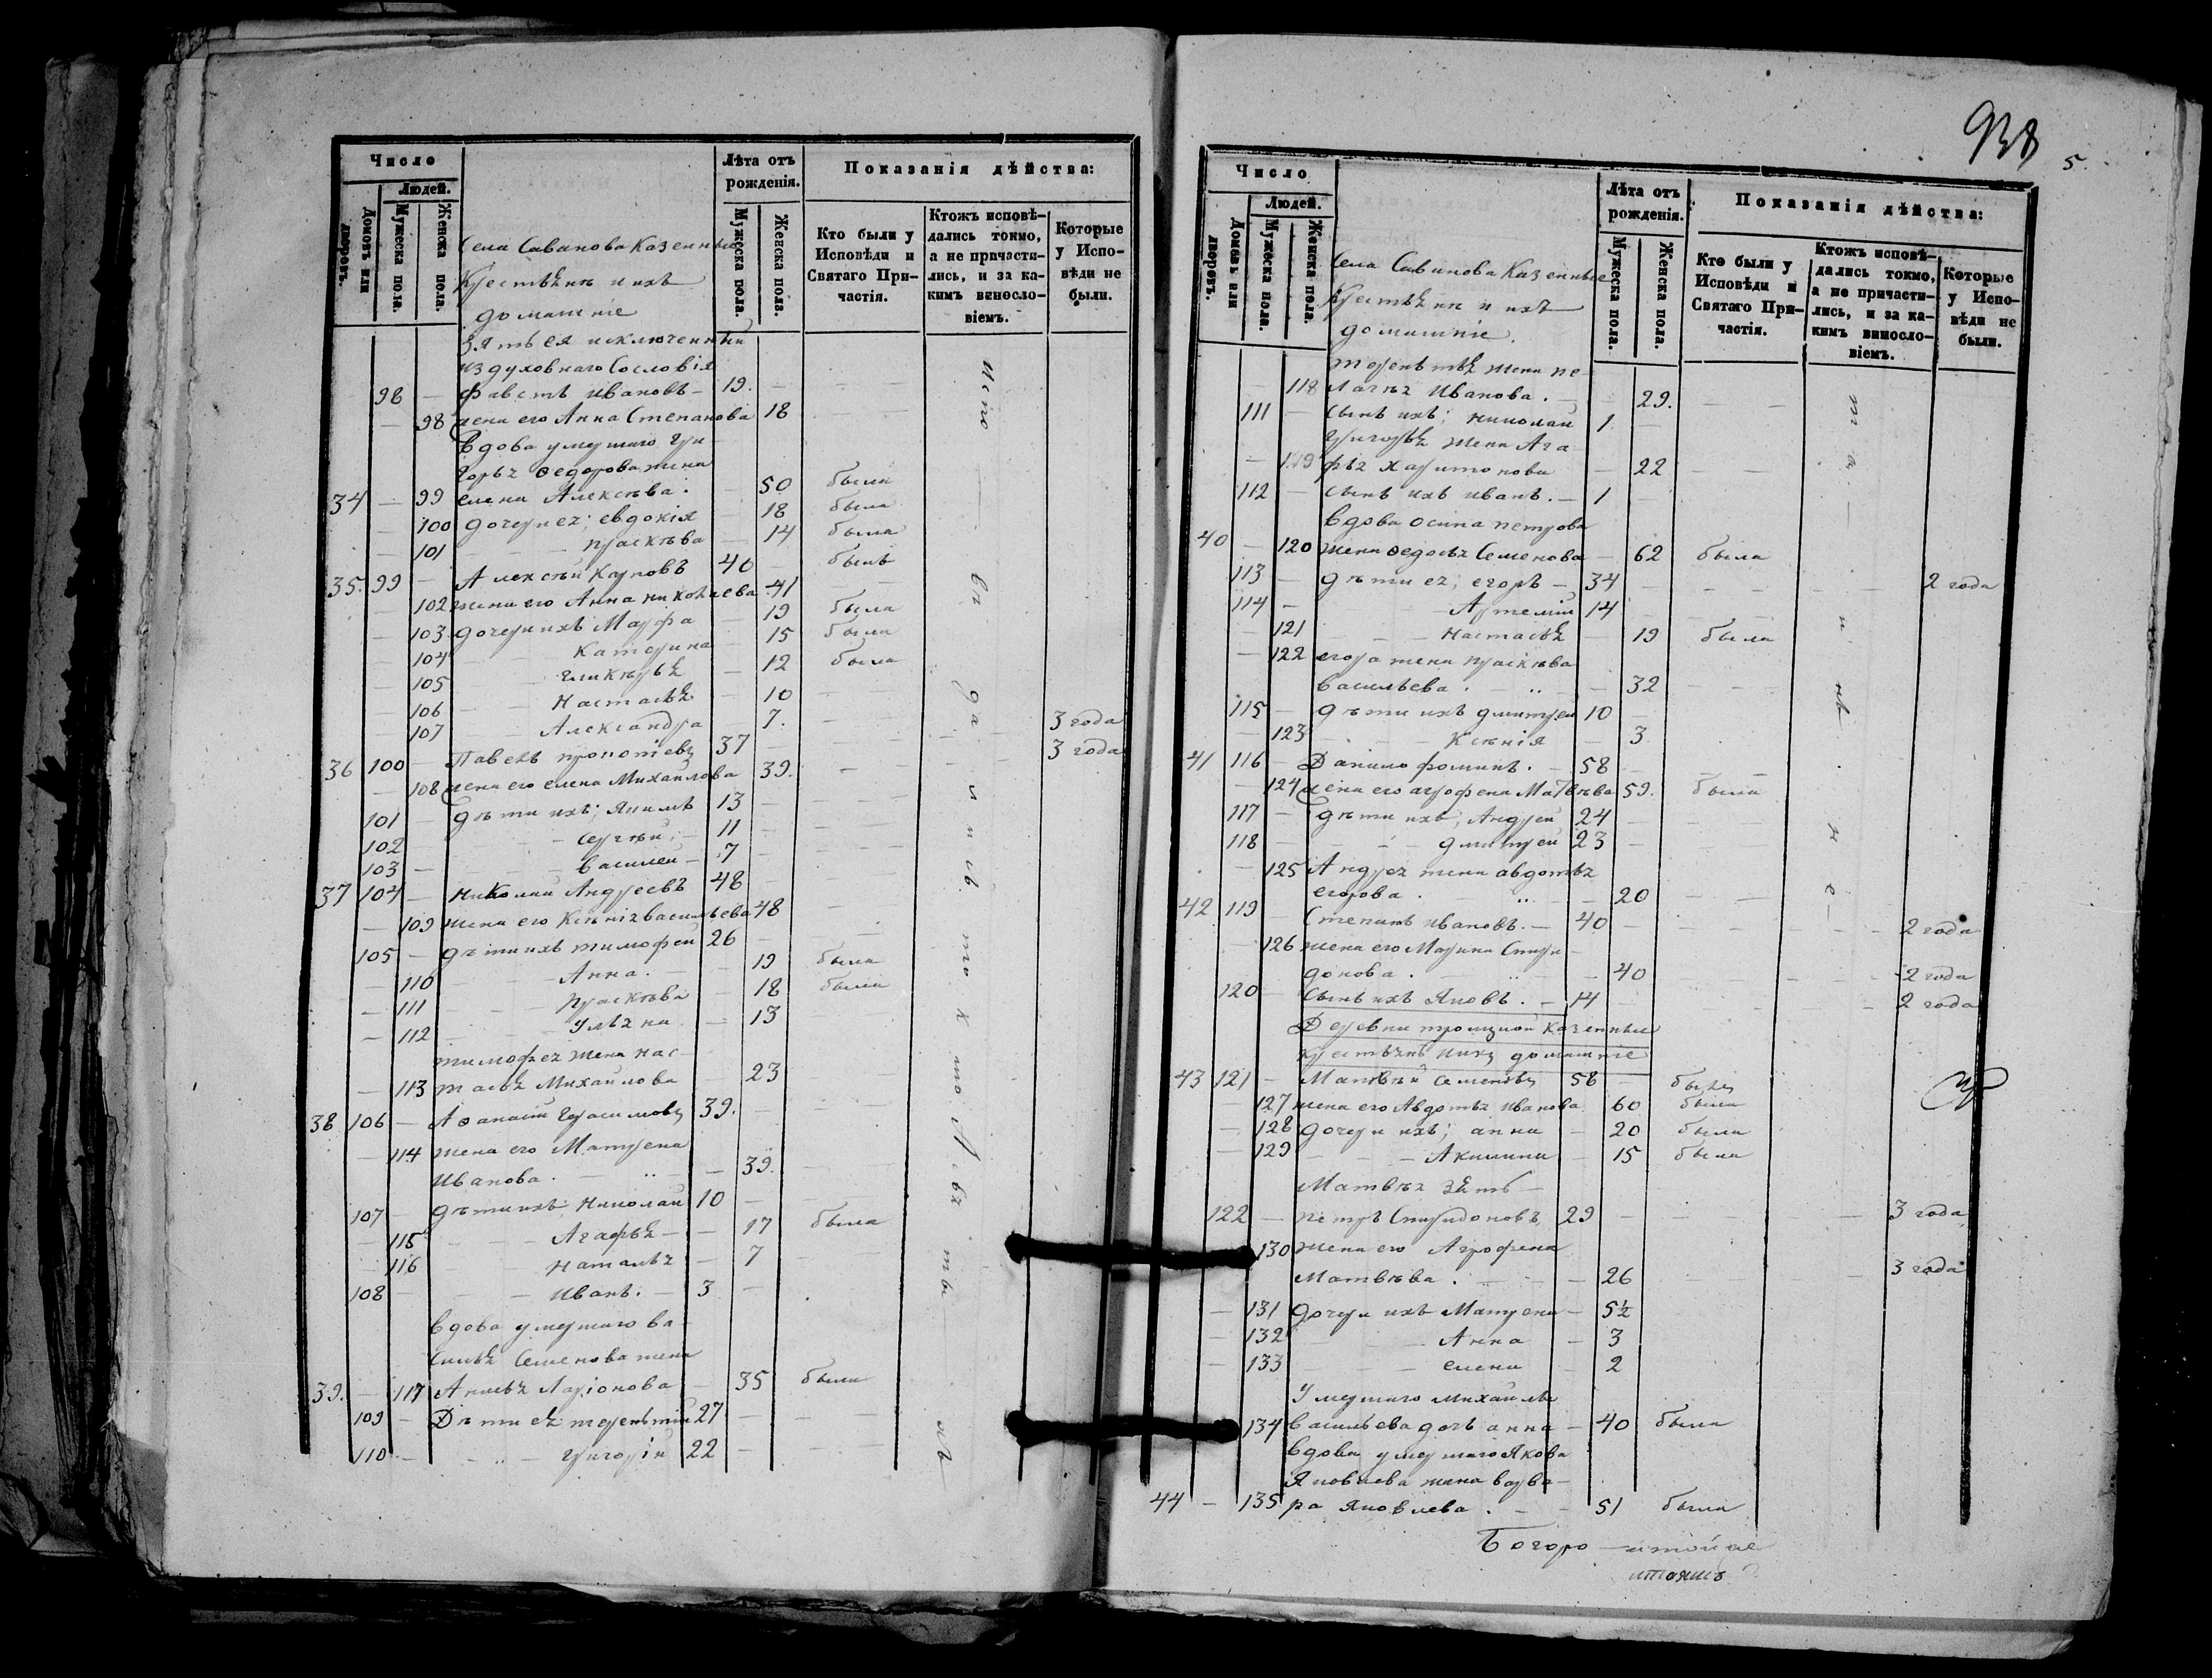 Число
Людей.
Домовъ или дворовъ.
Мужеска пола.
Женска пола.
Лѣта отъ рожденія.
Мужеска пола.
Женска пола.
Показанія дѣйства:
Кто были у Исповѣди и Святаго Причастія.
Ктожъ исповѣ-
дались токмо,
а не причасти-
лись, и за ка-
кимъ виносло-
віемъ.
Которые
у Испо-
вѣди не
были.
Села Саванова Казенные
Крестьяне и ихъ
домашніе
Зять ея исключенный
из духовнаго Сословія
98 — Фавстъ Ивановъ — 19.
— 98 жена его Анна Степанова 18
Вдова умершаго Гри-
горья Ѳедорова жена
34 — 99 Елена Алексѣева. 50 была
100 дочери ея; Евдокія 18 была
101 Праскѣва 14 была
35. 99 — Алексѣй Карповъ 40 — былъ
102 жена его Анна Николаева 41
103 дочери ихъ Марфа 19 была
104 Катерина 15 была
105 Гликѣрья 12 была
106 Настасья 10
107 Александра 7.
36 100 — Павелъ Прокопіевъ 37 3 года
108 жена его Елена Михайлова 39. 3 года
101 дѣти ихъ; Якимъ 13
102 Сергѣй 11
103 Василей 7
37 104 — Николай Андреевъ 48
— 109 жена его Ксѣнія Васильева 48
105 — дѣти ихъ Тимофей 26
110 Анна. 19 была
111 Праскѣва 18 была
112 Ульяна 13
Тимофея жена Нас-
113 тасья Михайлова 23
38 106 — Аѳанасій Герасимовъ 39.
— 114 жена его Матрена
Иванова. 39.
107 — дѣти ихъ Николай 10
115 Агафья 17 была
116 Наталья 7
108 Иванъ. 3
Вдова умершаго Ва-
силья Семенова жена
39. — 117 Анисья Ларіонова 35 была
109 — Дѣти ея Терентій 27
110 Григорій 22
Испо
вѣ
да
лись
то
к
мо
938
5.
Число
Людей.
Домовъ или дворовъ.
Мужеска пола.
Женска пола.
Лѣта отъ рожденія.
Мужеска пола.
Женска пола.
Показанія дѣйства:
Кто были у Исповѣди и Святаго Причастія.
Ктожъ исповѣ-
дались токмо,
а не причасти-
лись, и за ка-
кимъ виносло-
віемъ.
Которые
у Испо-
вѣди не
были.
Села Савинова Казенные
Крестьяне и ихъ
домашніе.
Терентья жена Пе-
118 лагея Иванова. 29.
111 — сынъ ихъ; Николай 1
Григорья жена Ага-
119 фья Харитонова — 22
112 — сынъ ихъ Иванъ. — 1
Вдова Осипа Петрова
40 — 120 жена Ѳедосья Семенова — 62 была
113 — дѣти ея; Егоръ — 34 2 года
114 — Артемій 14
121 Настасья — 19 была
— 122 Егора жена Праскѣва
Васильева. 32
115 — дѣти ихъ Дмитрей 10
123 Ксѣнія — 3
41 116 — Данило Фоминъ. — 58
124 жена его Агрофена Матвѣева 59. была
117 — дѣти ихъ, Андрей 24
118 — Дмитрей 23
125 Андрея жена Авдотья
Егорова. 20
42 119 Степанъ Ивановъ. — 40 2 года
126 жена его Марина Спири-
донова. 40 2 года
120 — сынъ ихъ Яковъ. — 14 2 года
Деревни Троицкой Казенные
крестьяне и ихъ домашніе
43 121 — Матвѣй Семеновъ 58 — былъ
127 жена его Авдотья Иванова 60 была
— 128 дочери ихъ; Анна — 20 была
129 Акилина — 15 была
Матвея зять —
122 — Петръ Спиридоновъ 29 3 года
130 жена его Агрофена
Матвѣева. — 26 3 года
— 131 дочери ихъ Матрена — 5½
— 132 Анна — 3
— 133 Елена 2
Умершаго Михаила
134 Васильева дочь Анна — 40 была
Вдова умершаго Якова
Яковлева жена Варва-
44 — 135 ра Яковлева. — 51 была